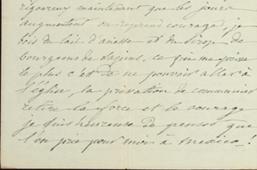 rigoureux maintenant que les jours
augmentent on reprend courage, je
bois du lait d'anesse et du sirop de
bourgeons de sapins, ce qui me prive
le plus c'est de ne pouvoir aller à
l'église, la privation de communier
retire la force et le courage
je suis heureuse de penser que
l'on prie pour moi à